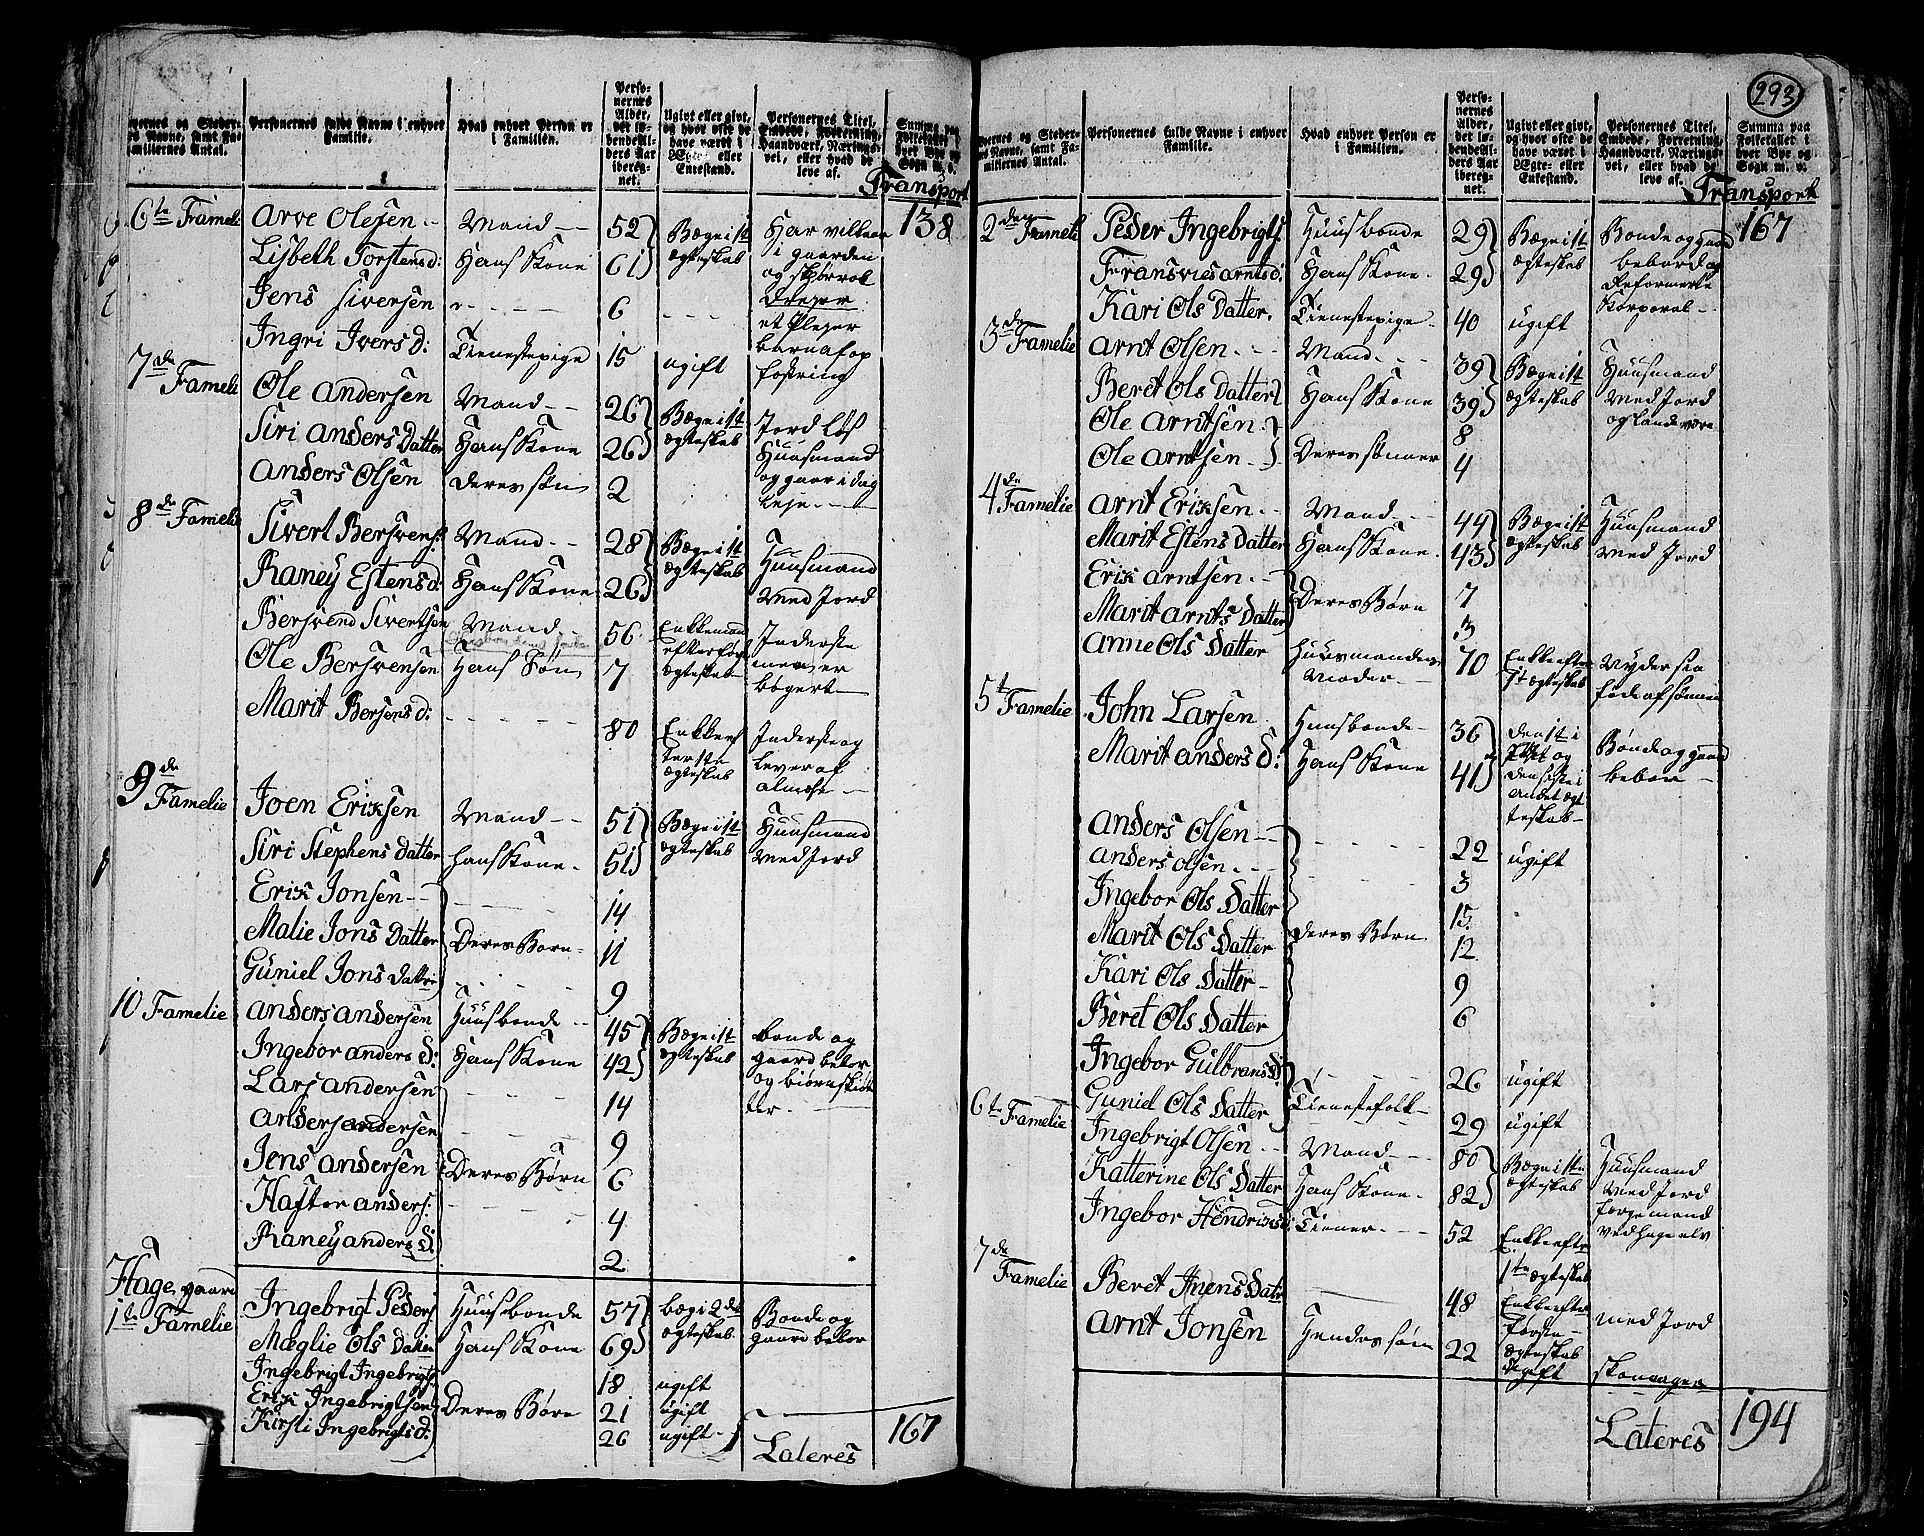 293
Personernes fulde Navne i enhver Familie.
Hvad enhver Person er i Familien.
Personernes Alder, det løbende Alders Aar iberegnet.
Ugivt eller givt, og hvor ofte de have været i Ægte- eller Enkestand.
Personernes Titel, Embede, Forretning, Haandværk, Næringsvei, eller hvad de leve af.
Summa paa Folketallet i hver Bye og Sogn m. v.
Transport
138
6te Famelie
Arve Olesen Mand 52 Begge i 1te ægteskab
Lisbeth Torstens d: Hans Kone 61
Jens Siversen 6
Ingri Ivers d: Tienestepige 15 ugift
7de Famelie
Ole Andersen Mand 26 Begge i 1te ægteskab Jord løs Huusmand og gaar i dag leje
Siri Anders Datter Hans Kone 26
Anders Olsen Deres søn 2
8de Famelie
Sivert Bersvens: Mand 28 Begge i 1te ægteskab Huusmand med Jord
Raney Estens d: Hans Kone 26
Bersvend Sivertsen Mand 56 Enkemand
Ole Bersvensen Hans Søn 7
Marit Bersens d: 80 Inderste og lever af almose
9de Famelie
Joen Erixsen Mand 51 Begge i 1te ægteskab Huusmand med Jord
Siri Stephens Datter hans Kone 51
Erix Jonsen 14
Malie Jons Datter Deres Børn 11
Guniel Jons Datter 9
10 Famelie
Anders Andersen Huusbonde 45 Begge i 1te ægteskab bonde og gaard beboer
Ingebor Anders D: Hans Kone 42
Lars Andersen 14
Anders Andersen 9
Jens Andersen Deres Børn 6
Haftor Anders: 4
Raney Anders D: 2
Hage gaard
1te Famelie
Ingebrigt Peders: Huusbonde 57 beg i 2det ægteskab Bonde og gaard beboer
Maglie Ols Datter Hans Kone 69
Ingebrigt Ingebrigts: 18 ugift
Erix Ingebrigtsen Deres Børn 21 ugift
Kirsti Ingebrigts d: 26 ugift
Lateres 167
Personernes fulde Navne i enhver Familie.
Hvad enhver Person er i Familien.
Personernes Alder, det løbende Alders Aar iberegnet.
Ugivt eller givt, og hvor ofte de have været i Ægte- eller Enkestand.
Personernes Titel, Embede, Forretning, Haandværk, Næringsvei, eller hvad de leve af.
Summa paa Folketallet i hver Bye og Sogn m. v.
Transport
167
2den Famelie
Peder Ingebrigts: Huusbonde 29 Begge i 1te ægteskab Bonde og gaard beboer og Reformerte Korporal
Fransvies Arnts d: Hans Kone 29
Kari Ols Datter Tienestepige 40 ugift
3de Famelie
Arnt Olsen Mand 39 Begge i 1te ægteskab Huusmand med Jord og landevære
Beret Ols Datter Hans Kone 39
Ole Arntsen 8
Ole Arntsen Deres sønner 4
4de Famelie
Arnt Erixsen Mand 44 Begge i 1te ægteskab Huusmand med Jord
Marit Estens Datter Hans Kone 43
Erix Arntsen 7
Marit Arnts Datter Deres Børn 3
Anne Ols Datter Huusmandens Moder 70 Enke efter 1te ægteskab Nyder sin føde af sønnen
5te Famelie
John Larsen Huusbonde 36 Bonde og gaard beboer
Marit Anders D: Hans Kone 41
Anders Olsen 22 ugift
Anders Olsen 3
Ingebor Ols Datter 15
Marit Ols Datter Deres Børn 12
Kari Ols Datter 9
Beret Ols Datter 6
Ingebor Gulbrans D: 26 ugift
Guniel Ols Datter Tienestefolk 29 ugift
6te Famelie
Ingebrigt Olsen Mand 80 Begge i 1te ægteskab Huusmand med Jord
Katterine Ols Datter Hans Kone 82
Ingebor Hendrixs d: Tiener 52 Enke efter 1te ægteskab
7de Famelie
Beret Datr 48 Enke efter første ægteskab med Jord
Arnt Jonsen Hendes søn 22 Ugift
Lateres 194